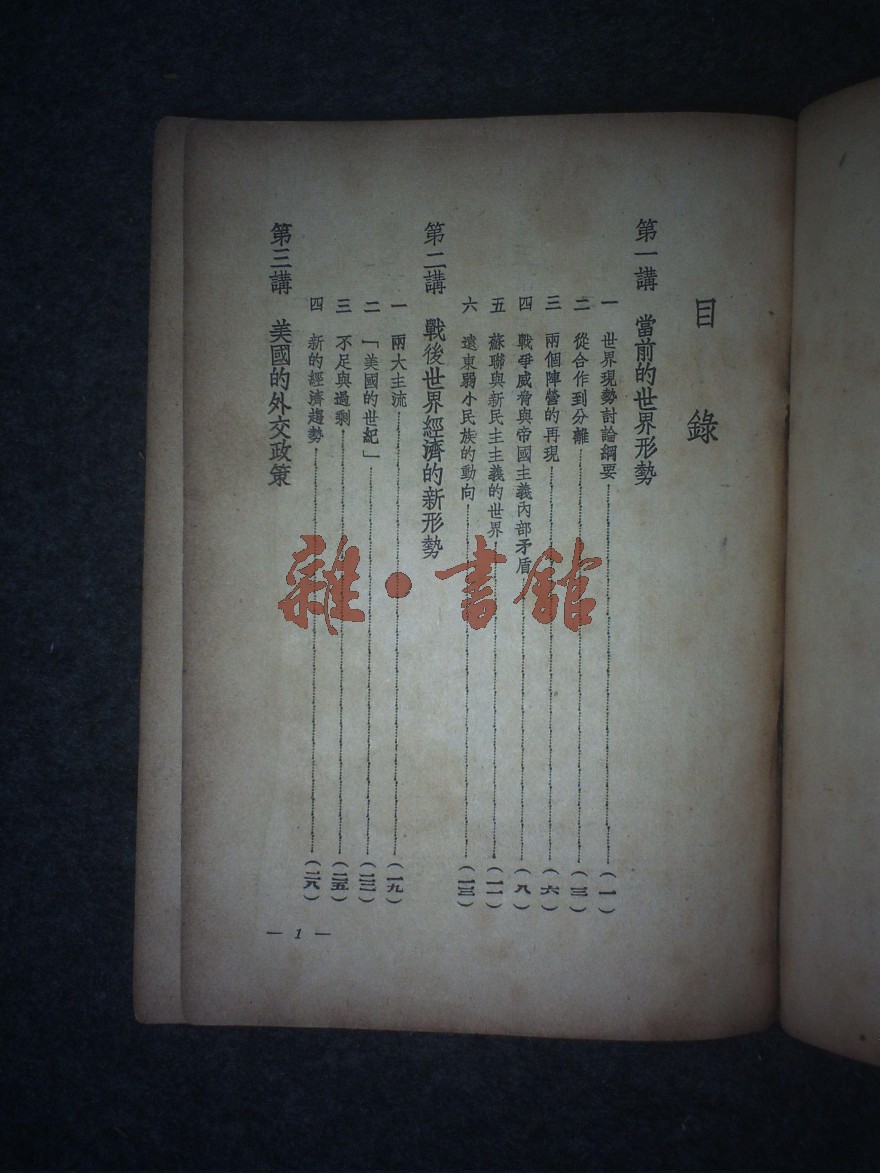 目錄
第一講 當前的世界形勢
一 世界現勢討論綱要……（一）
二 從合作到分離……（三）
三 兩個陣營的再現……（六）
四 戰爭威脅與帝國主義內部矛盾……（八）
五 蘇聯與新民主主義的世界……（一一）
六 遠東弱小民族的動向……（一三）
第二講 戰後世界經濟的新形勢
一 兩大主流……（一九）
二 「美國的世紀」……（二三）
三 不足與過剩……（二五）
四 新的經濟趨勢……（二八）
第三講 美國的外交政策
— 1 —
雜·書館